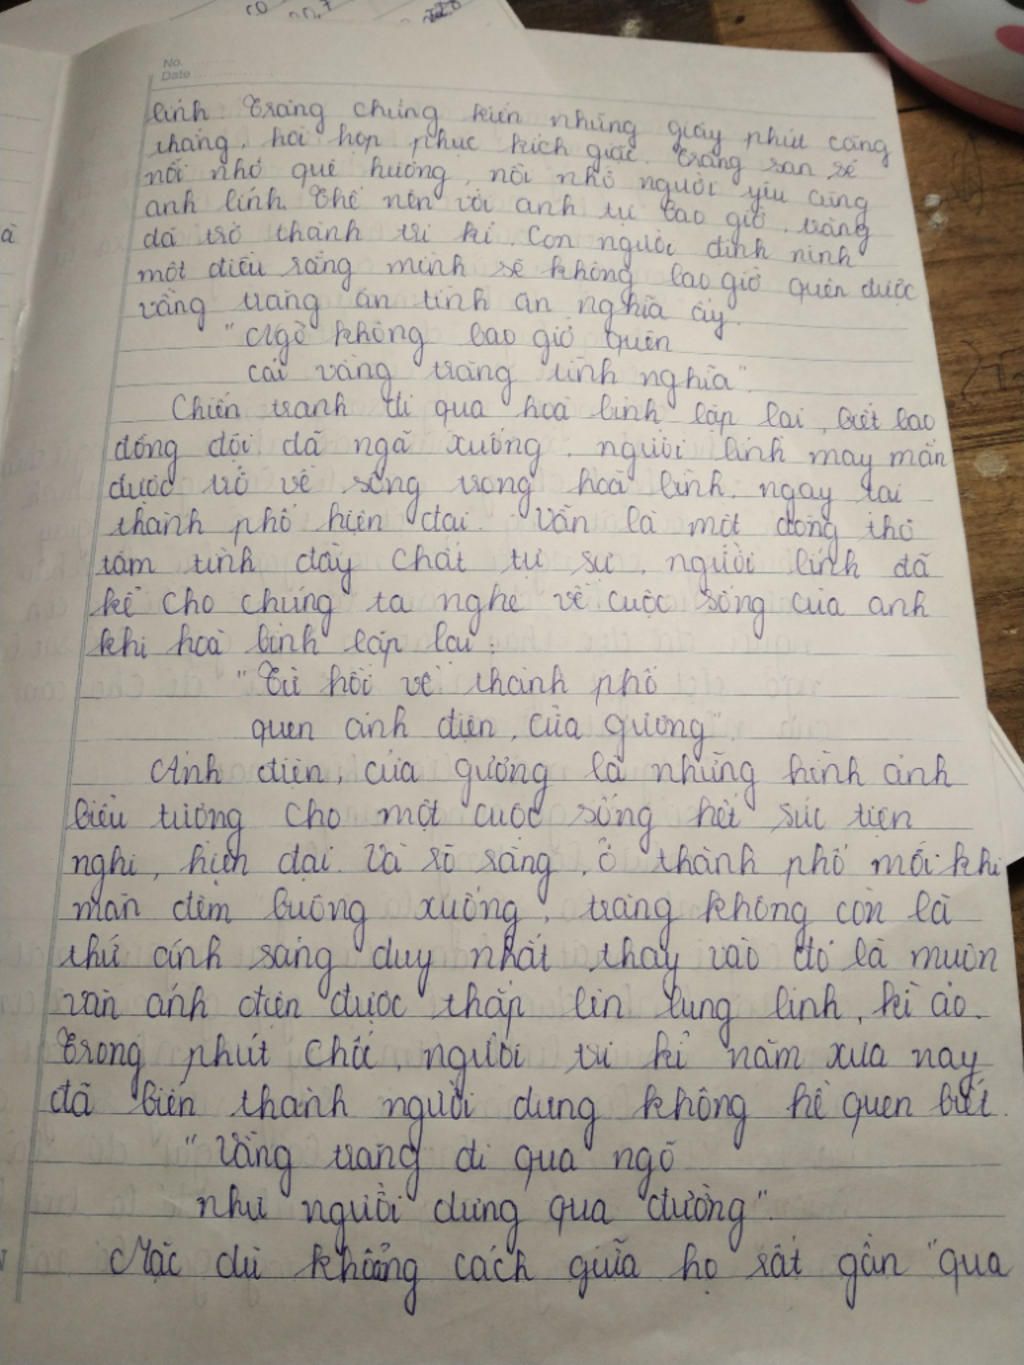 No.
Date
lính. Trăng chứng kiến những giây phút căng
thẳng, hồi hộp phục kích giặc. Trăng san sẻ
nỗi nhớ quê hương, nỗi nhớ người yêu cùng
anh lính. Thế nên với anh tự bao giờ, trăng
đã trở thành tri kỉ. Con người đinh ninh
một điều rằng mình sẽ không bao giờ quên được
vầng trăng ân tình ân nghĩa ấy.
"Ngỡ không bao giờ quên
cái vầng trăng tình nghĩa".
Chiến tranh đi qua hoà bình lập lại, biết bao
đồng đội đã ngã xuống, người lính may mắn
được trở về sống trong hoà bình, ngay tại
thành phố hiện đại. Vẫn là một dòng thơ
tâm tình đầy chất tự sự, người lính đã
kể cho chúng ta nghe về cuộc sống của anh
khi hoà bình lập lại:
"Từ hồi về thành phố
quen ánh điện, cửa gương"
Ánh điện, cửa gương là những hình ảnh
biểu tượng cho một cuộc sống hết sức tiện
nghi, hiện đại. Và rõ ràng, ở thành phố mỗi khi
màn đêm buông xuống, trăng không còn là
thứ ánh sáng duy nhất thay vào đó là muôn
vàn ánh điện được thắp lên lung linh, kì ảo.
Trong phút chốc, người tri kỉ năm xưa nay
đã biến thành người dưng không hề quen biết.
"Vầng trăng đi qua ngõ
như người dưng qua đường".
Mặc dù khoảng cách giữa họ rất gần "qua